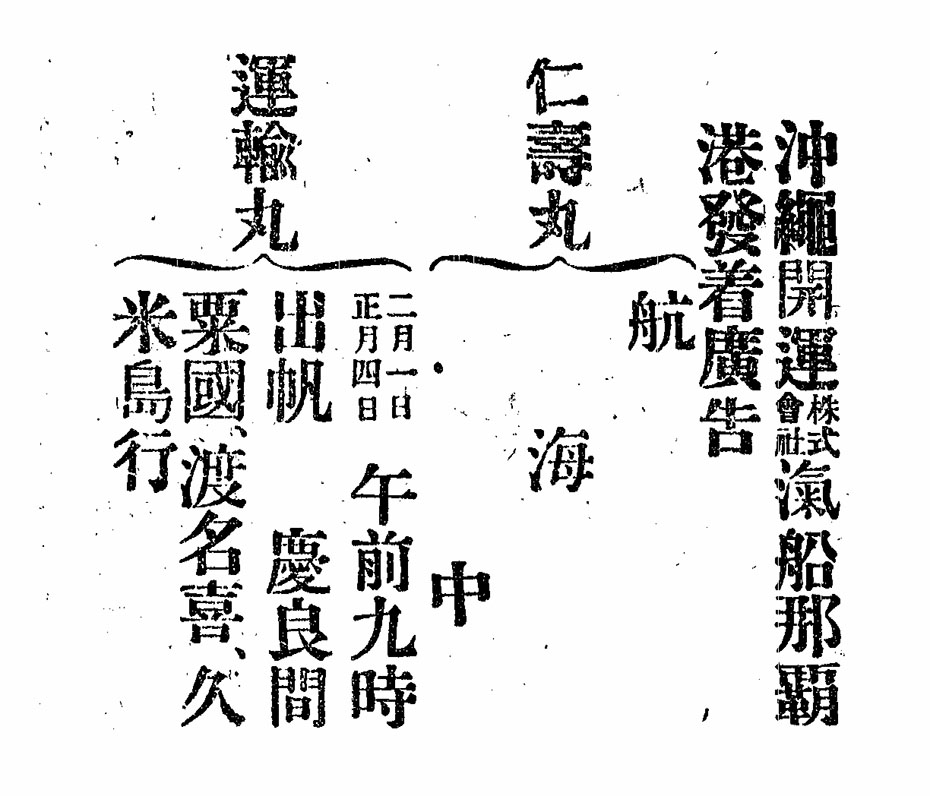 沖繩開運株式會社滊船那覇
港發着廣告
仁壽丸
航海中
運輸丸
二月一日
正月四日
午前九時
出帆 慶良間
粟國、渡名喜、久
米島行